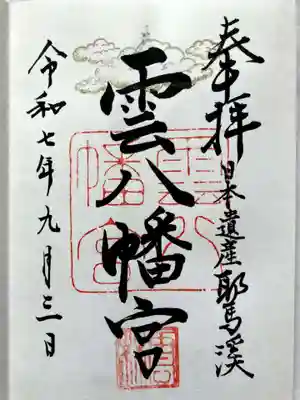 奉拝
日本遺産耶馬溪
雲八幡宮
令和七年九月三日